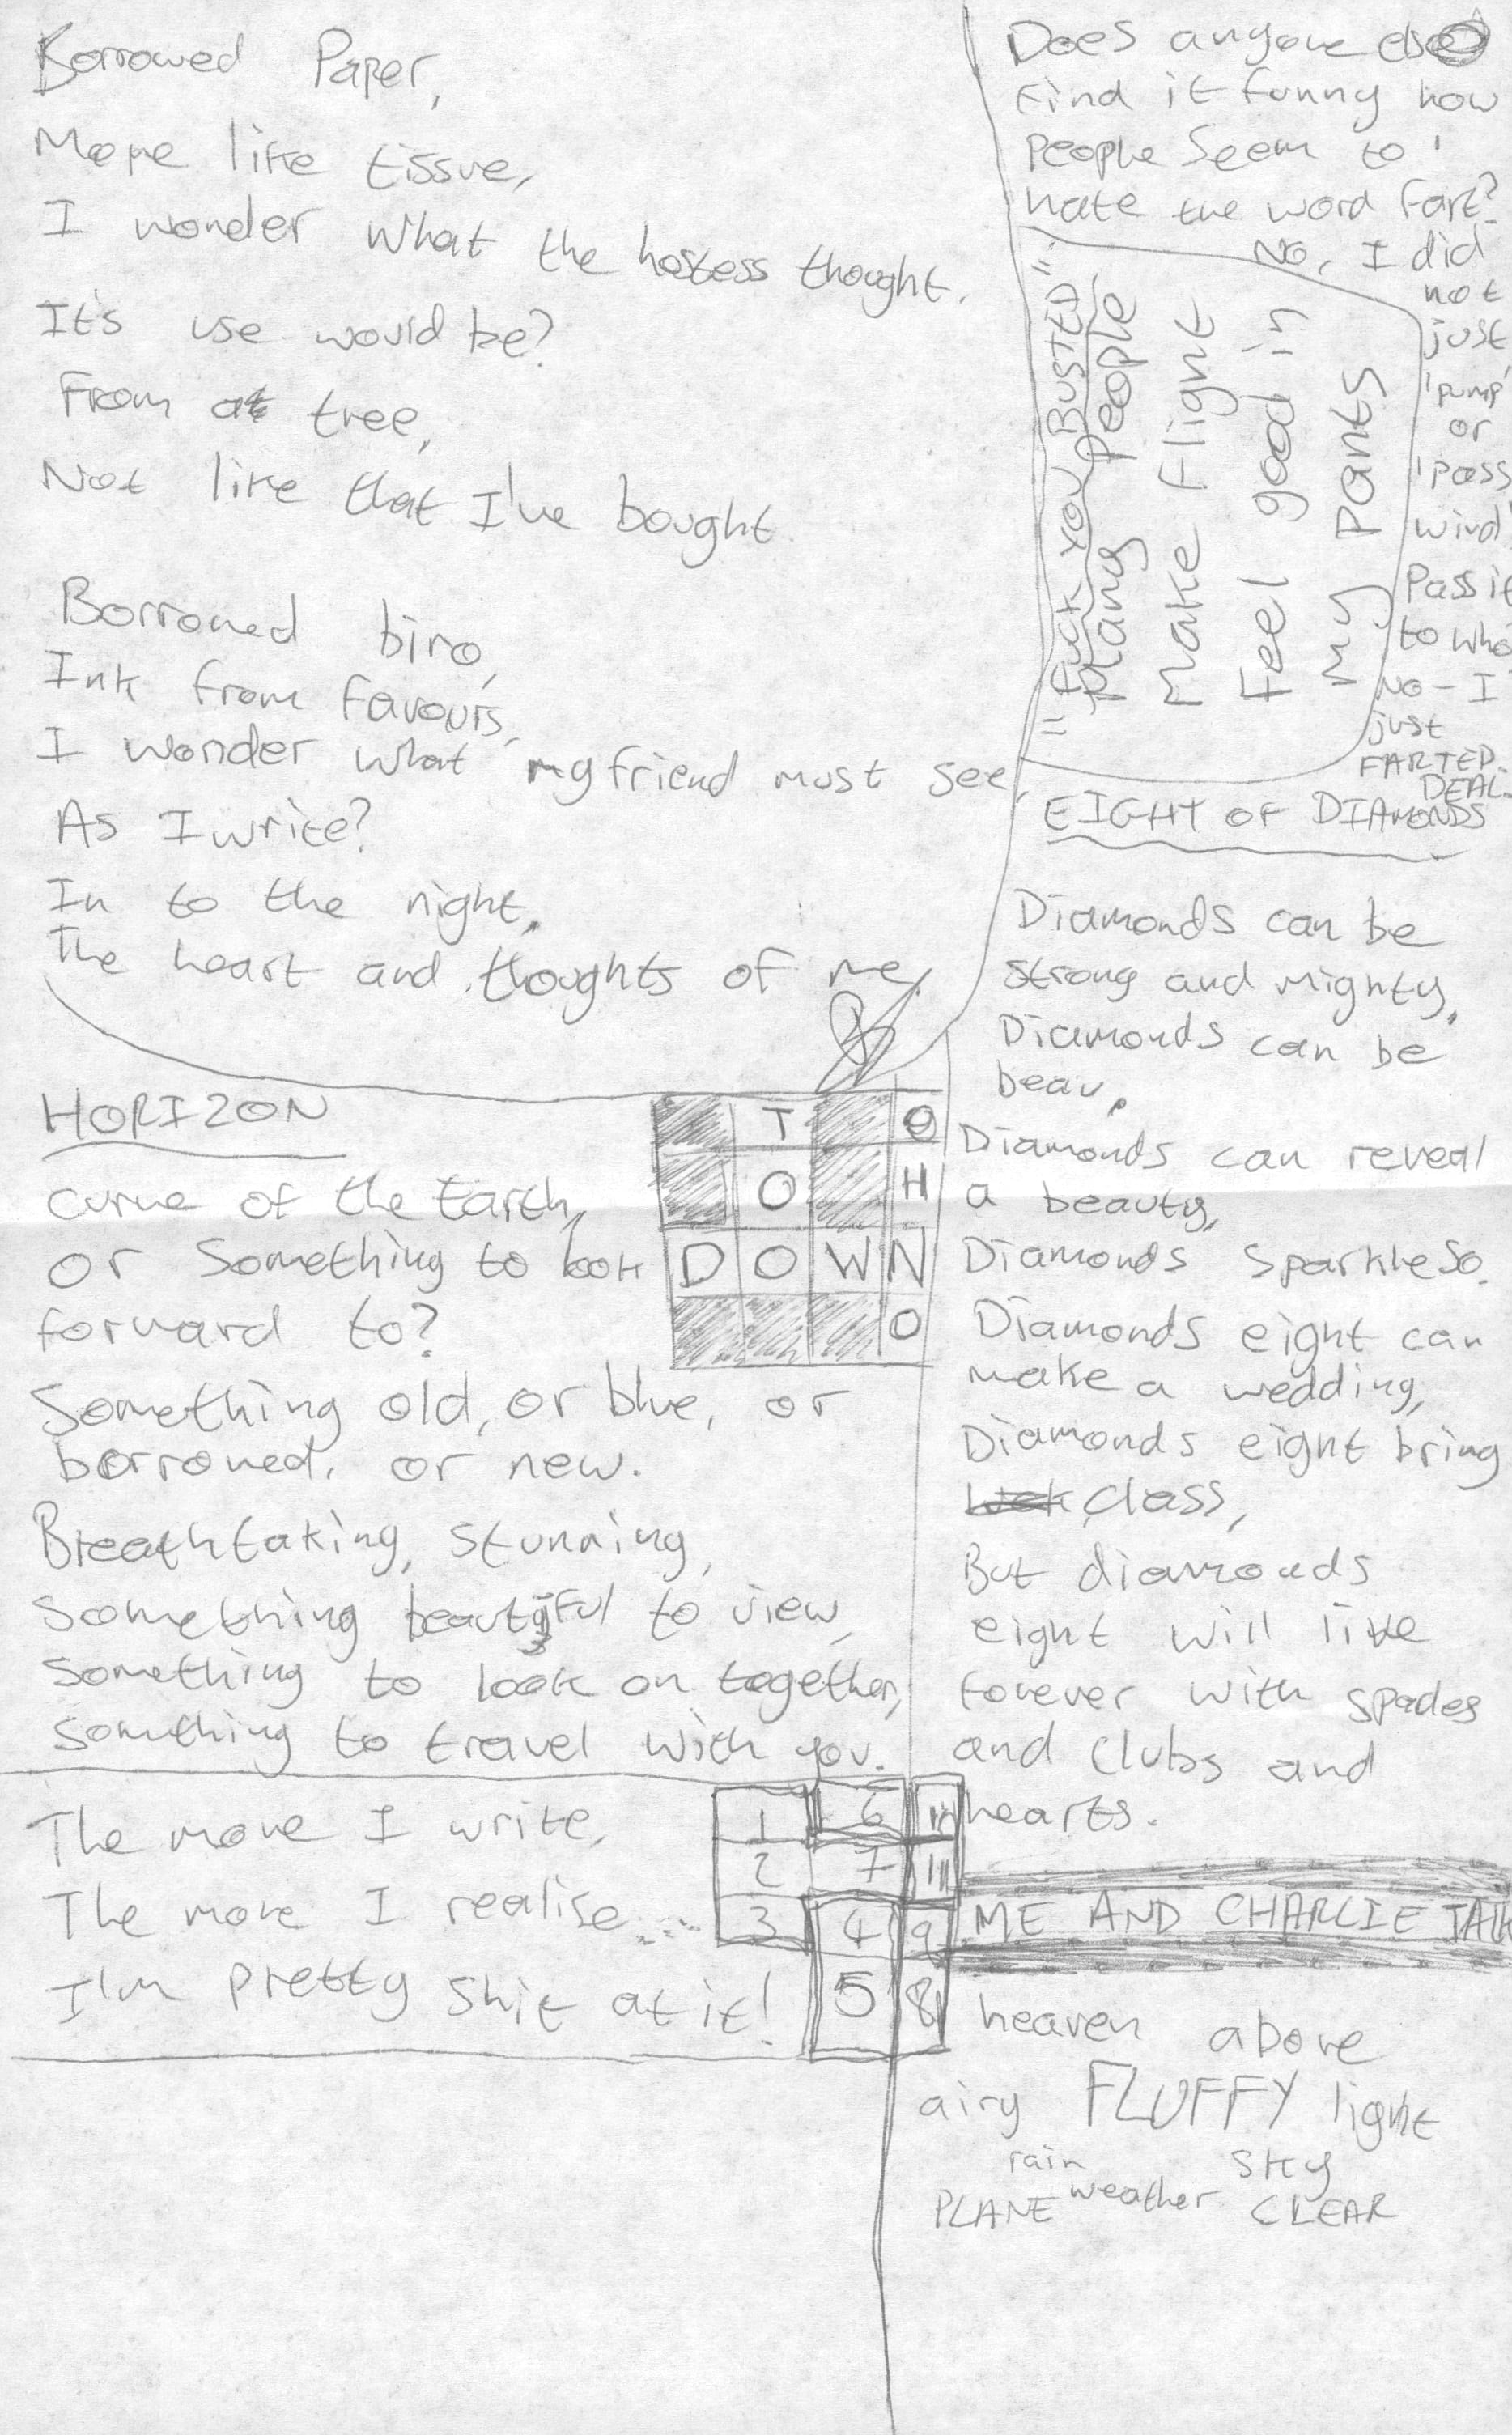 Borrowed Paper,
More like tissue,
I wonder what the hostess thought.
It's use would be?
From a tree,
Not like that I've bought
Borrowed biro,
Ink from favours,
I wonder what my friend must see,
As I write?
In to the night,
The heart and thoughts of me.
HORIZON
Curve of the Earth,
or something to look
forward to?
Something old, or blue, or
borrowed, or new.
Breathtaking, stunning,
Something beautiful to view,
Something to look on together,
Something to travel with you.
The more I write,
The more I realise...
I'm pretty shit at it!
T O
O H
D O W N
O
1 6
2 7
3 4 9
5 8
Does anyone else
find it funny how
people seem to
hate the word fart?
No, I did
not
just
'pump'
or
'pass
wind'
Pass it
to who
No - I
just
FARTED.
DEAL.
"FUCK YOU BUSTED"
plane people
Make flight
Feel good in
my pants
EIGHT OF DIAMONDS
Diamonds can be
strong and mighty,
Diamonds can be
beau,
Diamonds can reveal
a beauty,
Diamonds sparkle so.
Diamonds eight can
make a wedding,
Diamonds eight bring
class,
But diamonds
eight will live
forever with spades
and clubs and
hearts.
ME AND CHARLIE TALK
heaven above
airy FLUFFY light
rain sky
PLANE weather CLEAR